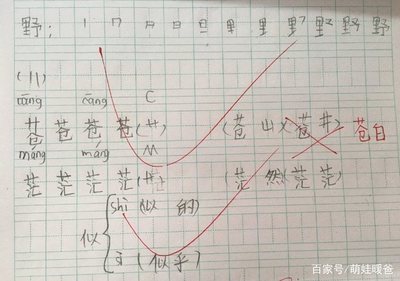 野: 丨 冂 日 旦 甲 里 野 野 野
(11)
cāng cāng C
苍 苍 苍 苍(艹) (苍山)(苍井) 苍白
máng máng M
茫 茫 茫 茫(艹) (茫然)(茫茫)
似 shì (似的)
sì (似乎)
百家号/萌娃暖爸